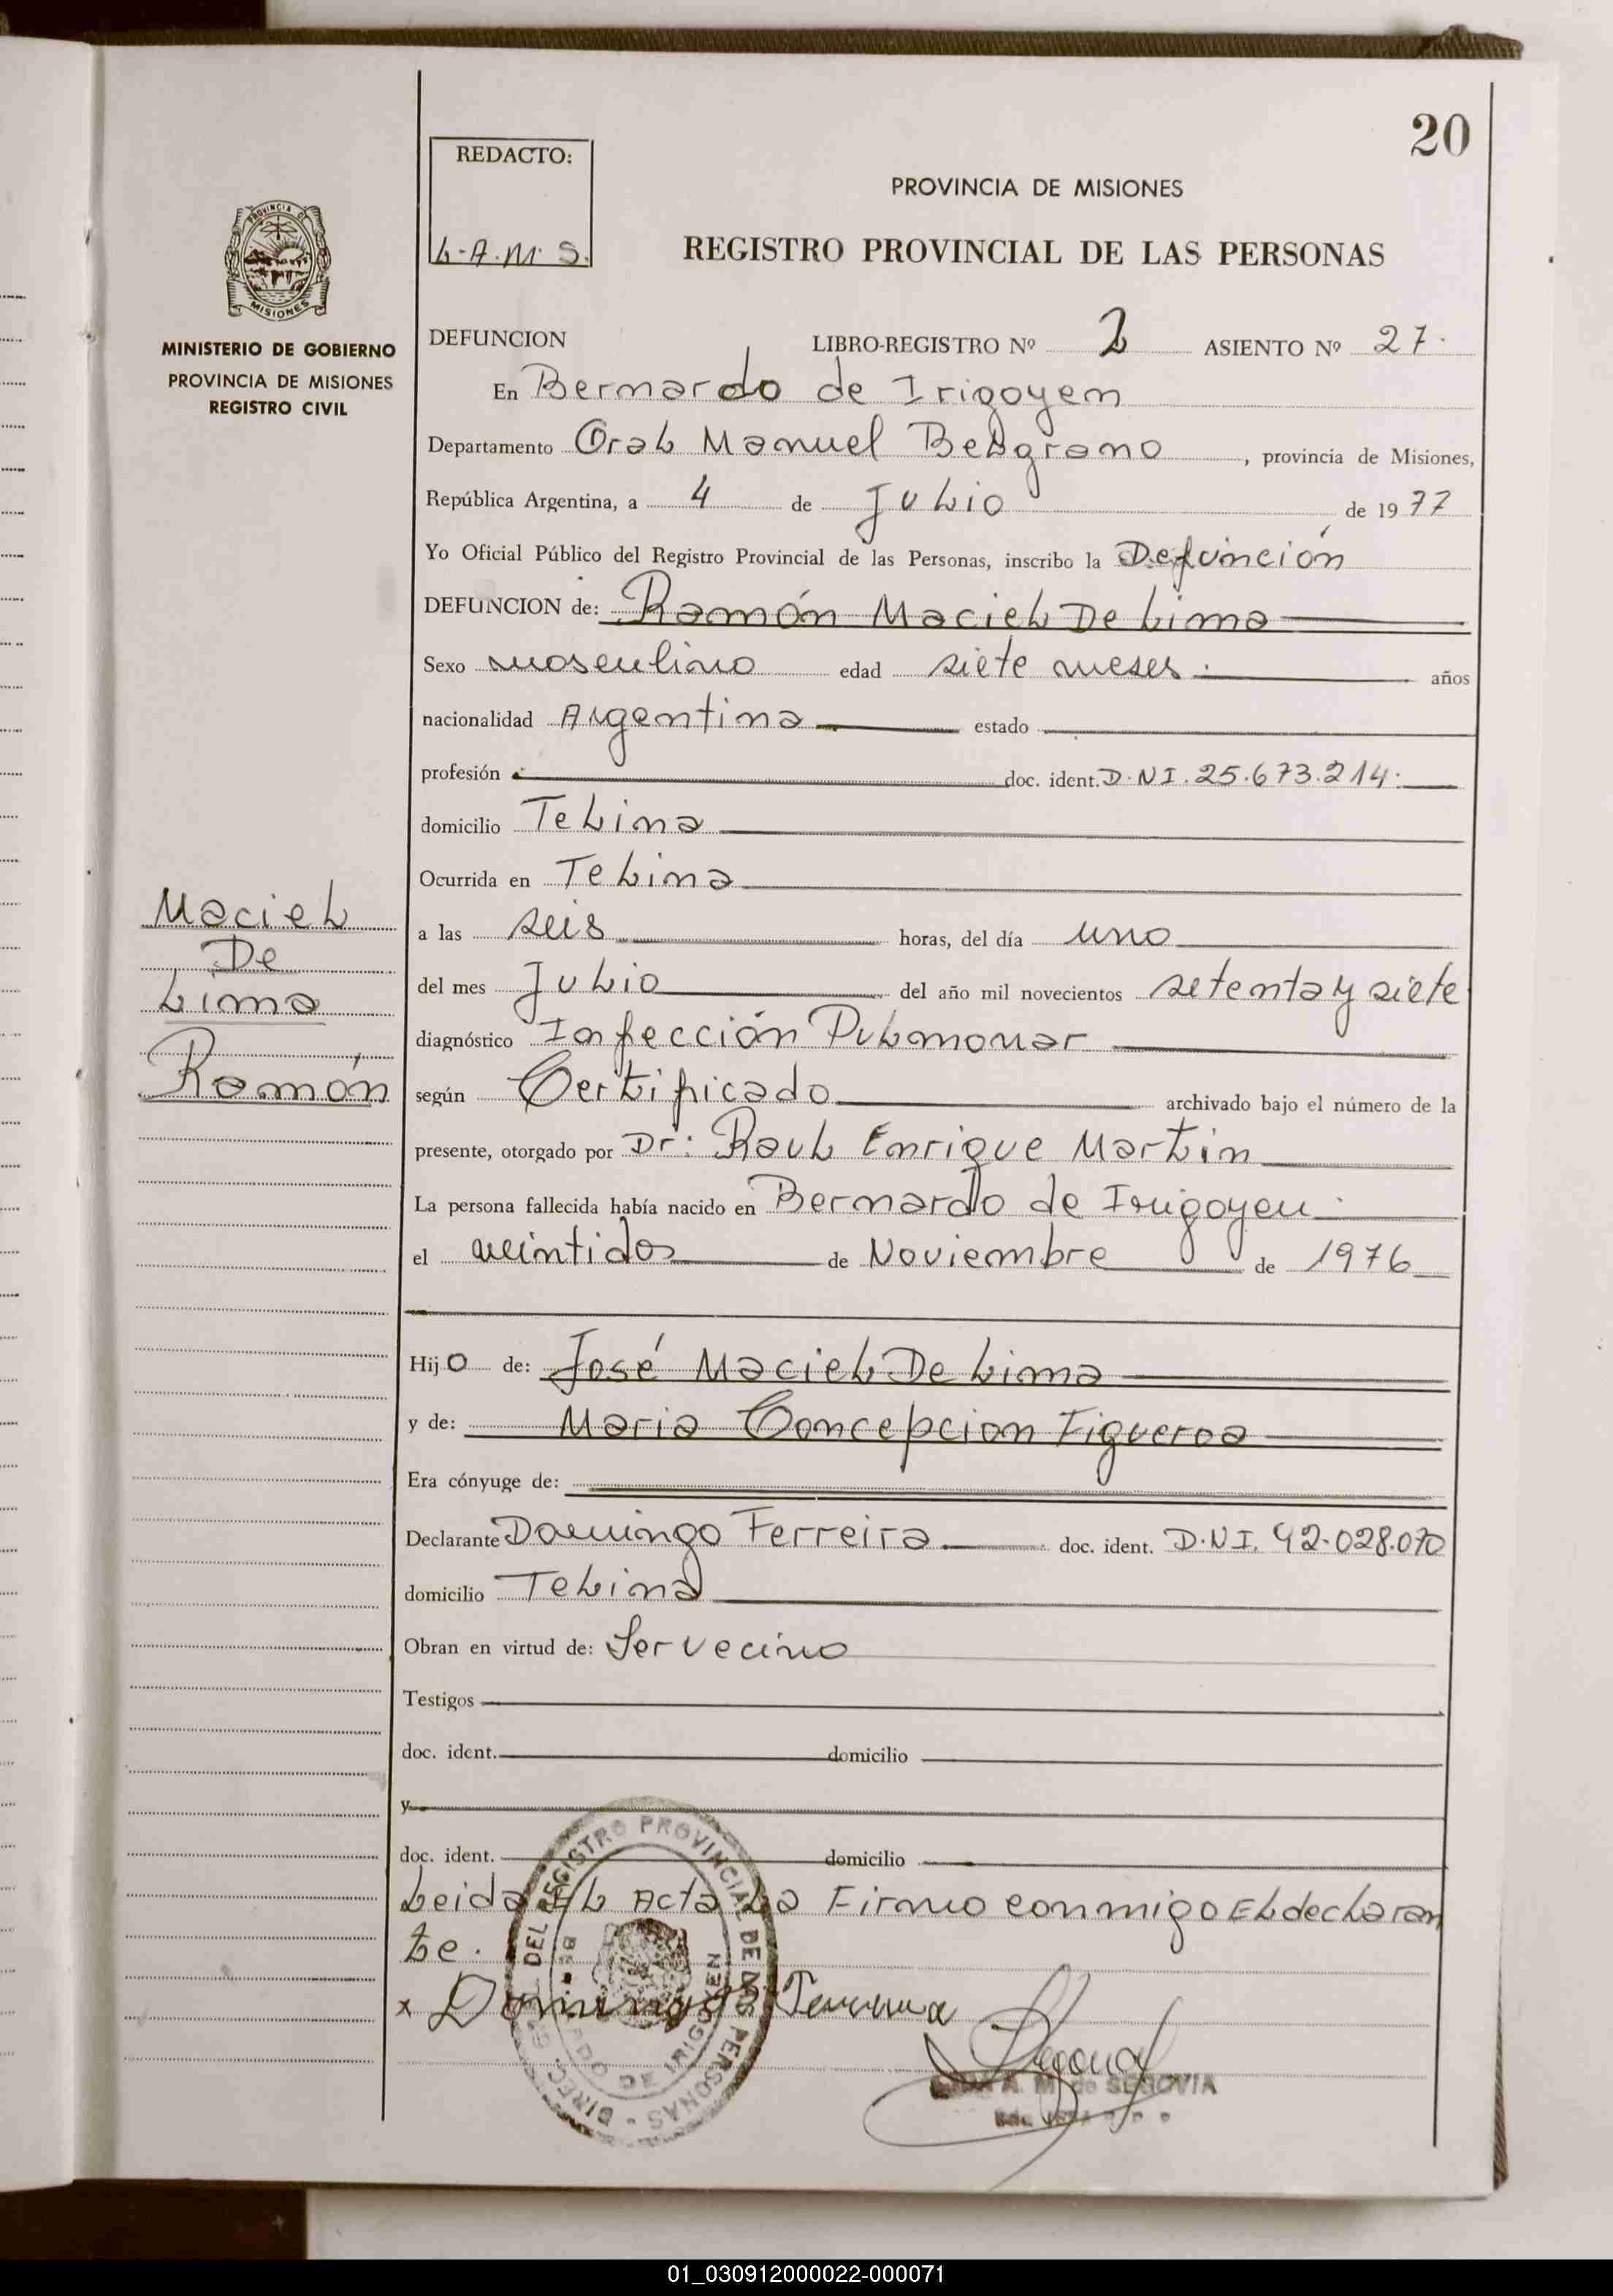 20
REDACTO:
L.A.M.S.
PROVINCIA DE MISIONES
REGISTRO PROVINCIAL DE LAS PERSONAS
PROVINCIA DE
MISIONES
MINISTERIO DE GOBIERNO
PROVINCIA DE MISIONES
REGISTRO CIVIL
DEFUNCION LIBRO-REGISTRO Nº 2 ASIENTO Nº 27.
En Bernardo de Irigoyen
Departamento Gral Manuel Belgrano, provincia de Misiones,
República Argentina, a 4 de Julio de 1977
Yo Oficial Público del Registro Provincial de las Personas, inscribo la Defunción
DEFUNCION de: Ramón Maciel De Lima
Sexo masculino edad siete meses. años
nacionalidad Argentina estado
profesión doc. ident. D.N.I. 25.673.214.
domicilio Telina
Ocurrida en Telina
a las seis horas, del día uno
del mes Julio del año mil novecientos setenta y siete
diagnóstico Infección Pulmonar
según Certificado archivado bajo el número de la
presente, otorgado por Dr: Raul Enrique Martin
La persona fallecida había nacido en Bernardo de Irigoyen.
el veintidos de Noviembre de 1976
Maciel
De
Lima
Ramón
Hijo de: José Maciel De Lima
y de: Maria Concepcion Figueroa
Era cónyuge de:
Declarante Domingo Ferreira doc. ident. D.N.I. 92.028.070
domicilio Telina
Obran en virtud de: Ser vecino
Testigos
doc. ident. domicilio
y
doc. ident. domicilio
Leida El Acta La Firmo conmigo El declaran
te.
x Domingo Ferreira
DIREC. GRAL. DEL REGISTRO PROVINCIAL DE LAS PERSONAS
BERNARDO DE IRIGOYEN
A. M. de SEGOVIA
01_030912000022-000071